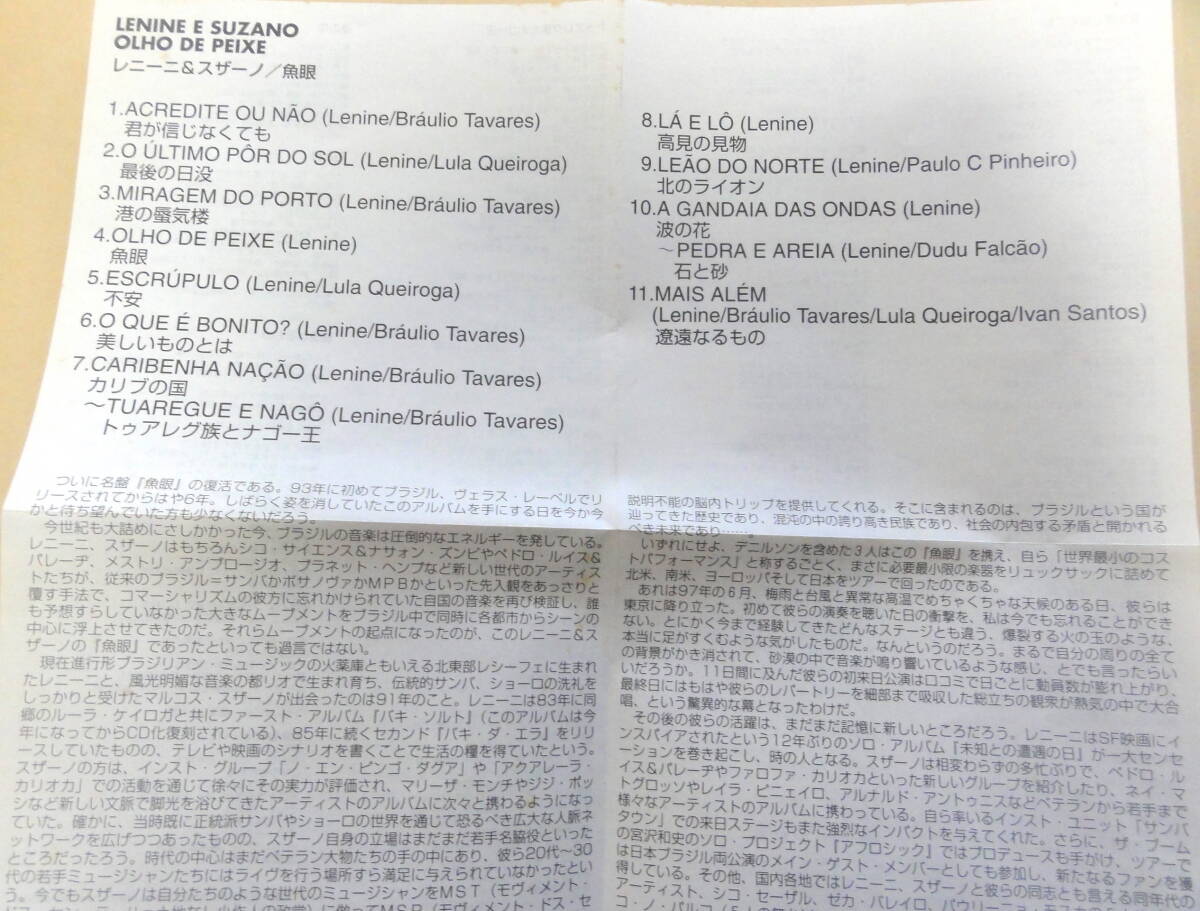 LENINE E SUZANO
OLHO DE PEIXE
レニーニ&スザーノ/魚眼
1.ACREDITE OU NÃO (Lenine/Bráulio Tavares)
君が信じなくても
2.O ÚLTIMO PÔR DO SOL (Lenine/Lula Queiroga)
最後の日没
3.MIRAGEM DO PORTO (Lenine/Bráulio Tavares)
港の蜃気楼
4.OLHO DE PEIXE (Lenine)
魚眼
5.ESCRÚPULO (Lenine/Lula Queiroga)
不安
6.O QUE É BONITO? (Lenine/Bráulio Tavares)
美しいものとは
7.CARIBENHA NAÇÃO (Lenine/Bráulio Tavares)
カリブの国
〜TUAREGUE E NAGÔ (Lenine/Bráulio Tavares)
トゥアレグ族とナゴー王
8.LÁ E LÔ (Lenine)
高見の見物
9.LEÃO DO NORTE (Lenine/Paulo C Pinheiro)
北のライオン
10.A GANDAIA DAS ONDAS (Lenine)
波の花
〜PEDRA E AREIA (Lenine/Dudu Falcão)
石と砂
11.MAIS ALÉM
(Lenine/Bráulio Tavares/Lula Queiroga/Ivan Santos)
遼遠なるもの
ついに名盤『魚眼』の復活である。93年に初めてブラジル、ヴェラス・レーベルでリ
リースされてからはや6年。しばらく姿を消していたこのアルバムを手にする日を今か今
かと待ち望んでいた方も少なくないだろう。
今世紀も大詰めにさしかかった今、ブラジルの音楽は圧倒的なエネルギーを発している。
レニーニ、スザーノはもちろんシコ・サイエンス&ナサォン・ズンビやペドロ・ルイス&
パレーヂ、メストリ・アンブロージオ、プラネット・ヘンプなど新しい世代のアーティス
トたちが、従来のブラジル=サンバかボサノヴァかMPBかといった先入観をあっさりと
覆す手法で、コマーシャリズムの彼方に忘れかけられていた自国の音楽を再び検証し、誰
も予想すらしていなかった大きなムーブメントをブラジル中で同時に各都市からシーンの
中心に浮上させてきたのだ。それらムーブメントの起点になったのが、このレニーニ&ス
ザーノの『魚眼』であったといっても過言ではない。
現在進行形ブラジリアン・ミュージックの火薬庫ともいえる北東部レシーフェに生まれ
たレニーニと、風光明媚な音楽の都リオで生まれ育ち、伝統的サンバ、ショーロの洗礼を
しっかりと受けたマルコス・スザーノが出会ったのは91年のこと。レニーニは83年に同
郷のルーラ・ケイロガと共にファースト・アルバム『バキ・ソルト』(このアルバムは今
年になってからCD化復刻されている)、85年に続くセカンド『バキ・ダ・エラ』をリリ
ースしていたものの、テレビや映画のシナリオを書くことで生活の糧を得ていたという。
スザーノの方は、インスト・グループ「ノ・エン・ピンゴ・ダグア」や「アクアレーラ・
カリオカ」での活動を通じて徐々にその実力が評価され、マリーザ・モンチやジジ・ポッ
シなど新しい文脈で脚光を浴びてきたアーティストのアルバムに次々と携わるようになっ
ていた。確かに、当時既に正統派サンバやショーロの世界を通じて恐るべき広大な人脈ネ
ットワークを広げつつあったものの、スザーノ自身の立場はまだまだ若手名脇役といった
ところだったろう。時代の中心はまだベテラン大物たちの手の中にあり、彼ら20代〜30
代の若手ミュージシャンたちにはライヴを行う場所すら満足に与えられていなかったとい
う。今でもスザーノは自分たちのような世代のミュージシャンをMST(モヴィメント・
説明不能の脳内トリップを提供してくれる。そこに含まれるのは、ブラジルという国が
辿ってきた歴史であり、混沌の中の誇り高き民族であり、社会の内包する矛盾と開かれる
べき未来であり……。
いずれにせよ、デニルソンを含めた3人はこの『魚眼』を携え、自ら「世界最小のコス
トパフォーマンス」と称するごとく、まさに必要最小限の楽器をリュックサックに詰めて
北米、南米、ヨーロッパそして日本をツアーで回ったのである。
あれは97年の6月、梅雨と台風と異常な高温でめちゃくちゃな天候のある日、彼らは
東京に降り立った。初めて彼らの演奏を聴いた日の衝撃を、私は今でも忘れることができ
ない。とにかく今まで経験してきたどんなステージとも違う、爆裂する火の玉のような、
本当に足がすくむような気がしたものだ。なんというのだろう。まるで自分の周りの全て
の背景がかき消されて、砂漠の中で音楽が鳴り響いているような感じ、とでも言ったらい
いだろうか。11日間に及んだ彼らの初来日公演は口コミで日ごとに動員数が膨れ上がり、
最終日にはもはや彼らのレパートリーを細部まで吸収した総立ちの観衆が熱気の中で大合
唱、という驚異的な幕となったわけだ。
その後の彼らの活躍は、まだまだ記憶に新しいところだろう。レニーニはSF映画にイ
ンスパイアされたという12年ぶりのソロ・アルバム『未知との遭遇の日』が一大センセ
ーションを巻き起こし、時の人となる。スザーノは相変わらずの多忙ぶりで、ペドロ・ル
イス&パレーヂやファロファ・カリオカといった新しいグループを紹介したり、ネイ・マ
トグロッソやレイラ・ピニェイロ、アルナルド・アントゥニスなどベテランから若手まで
様々なアーティストのアルバムに携わっている。自ら率いるインスト・ユニット「サンバ
タウン」での来日ステージもまた強烈なインパクトを与えてくれた。さらに、ザ・ブーム
の宮沢和史のソロ・プロジェクト『アフロシック』ではプロデュースも手がけ、ツアーで
は日本ブラジル両公演のメイン・ゲスト・メンバーとしても参加し、新たなファンを獲
得している。その他、国内各地ではレニーニ、スザーノと彼らの同志とも言える同年代の
アーティスト、シコ・セーザル、ゼカ・バレイロ、パウリーニョ・モスカ